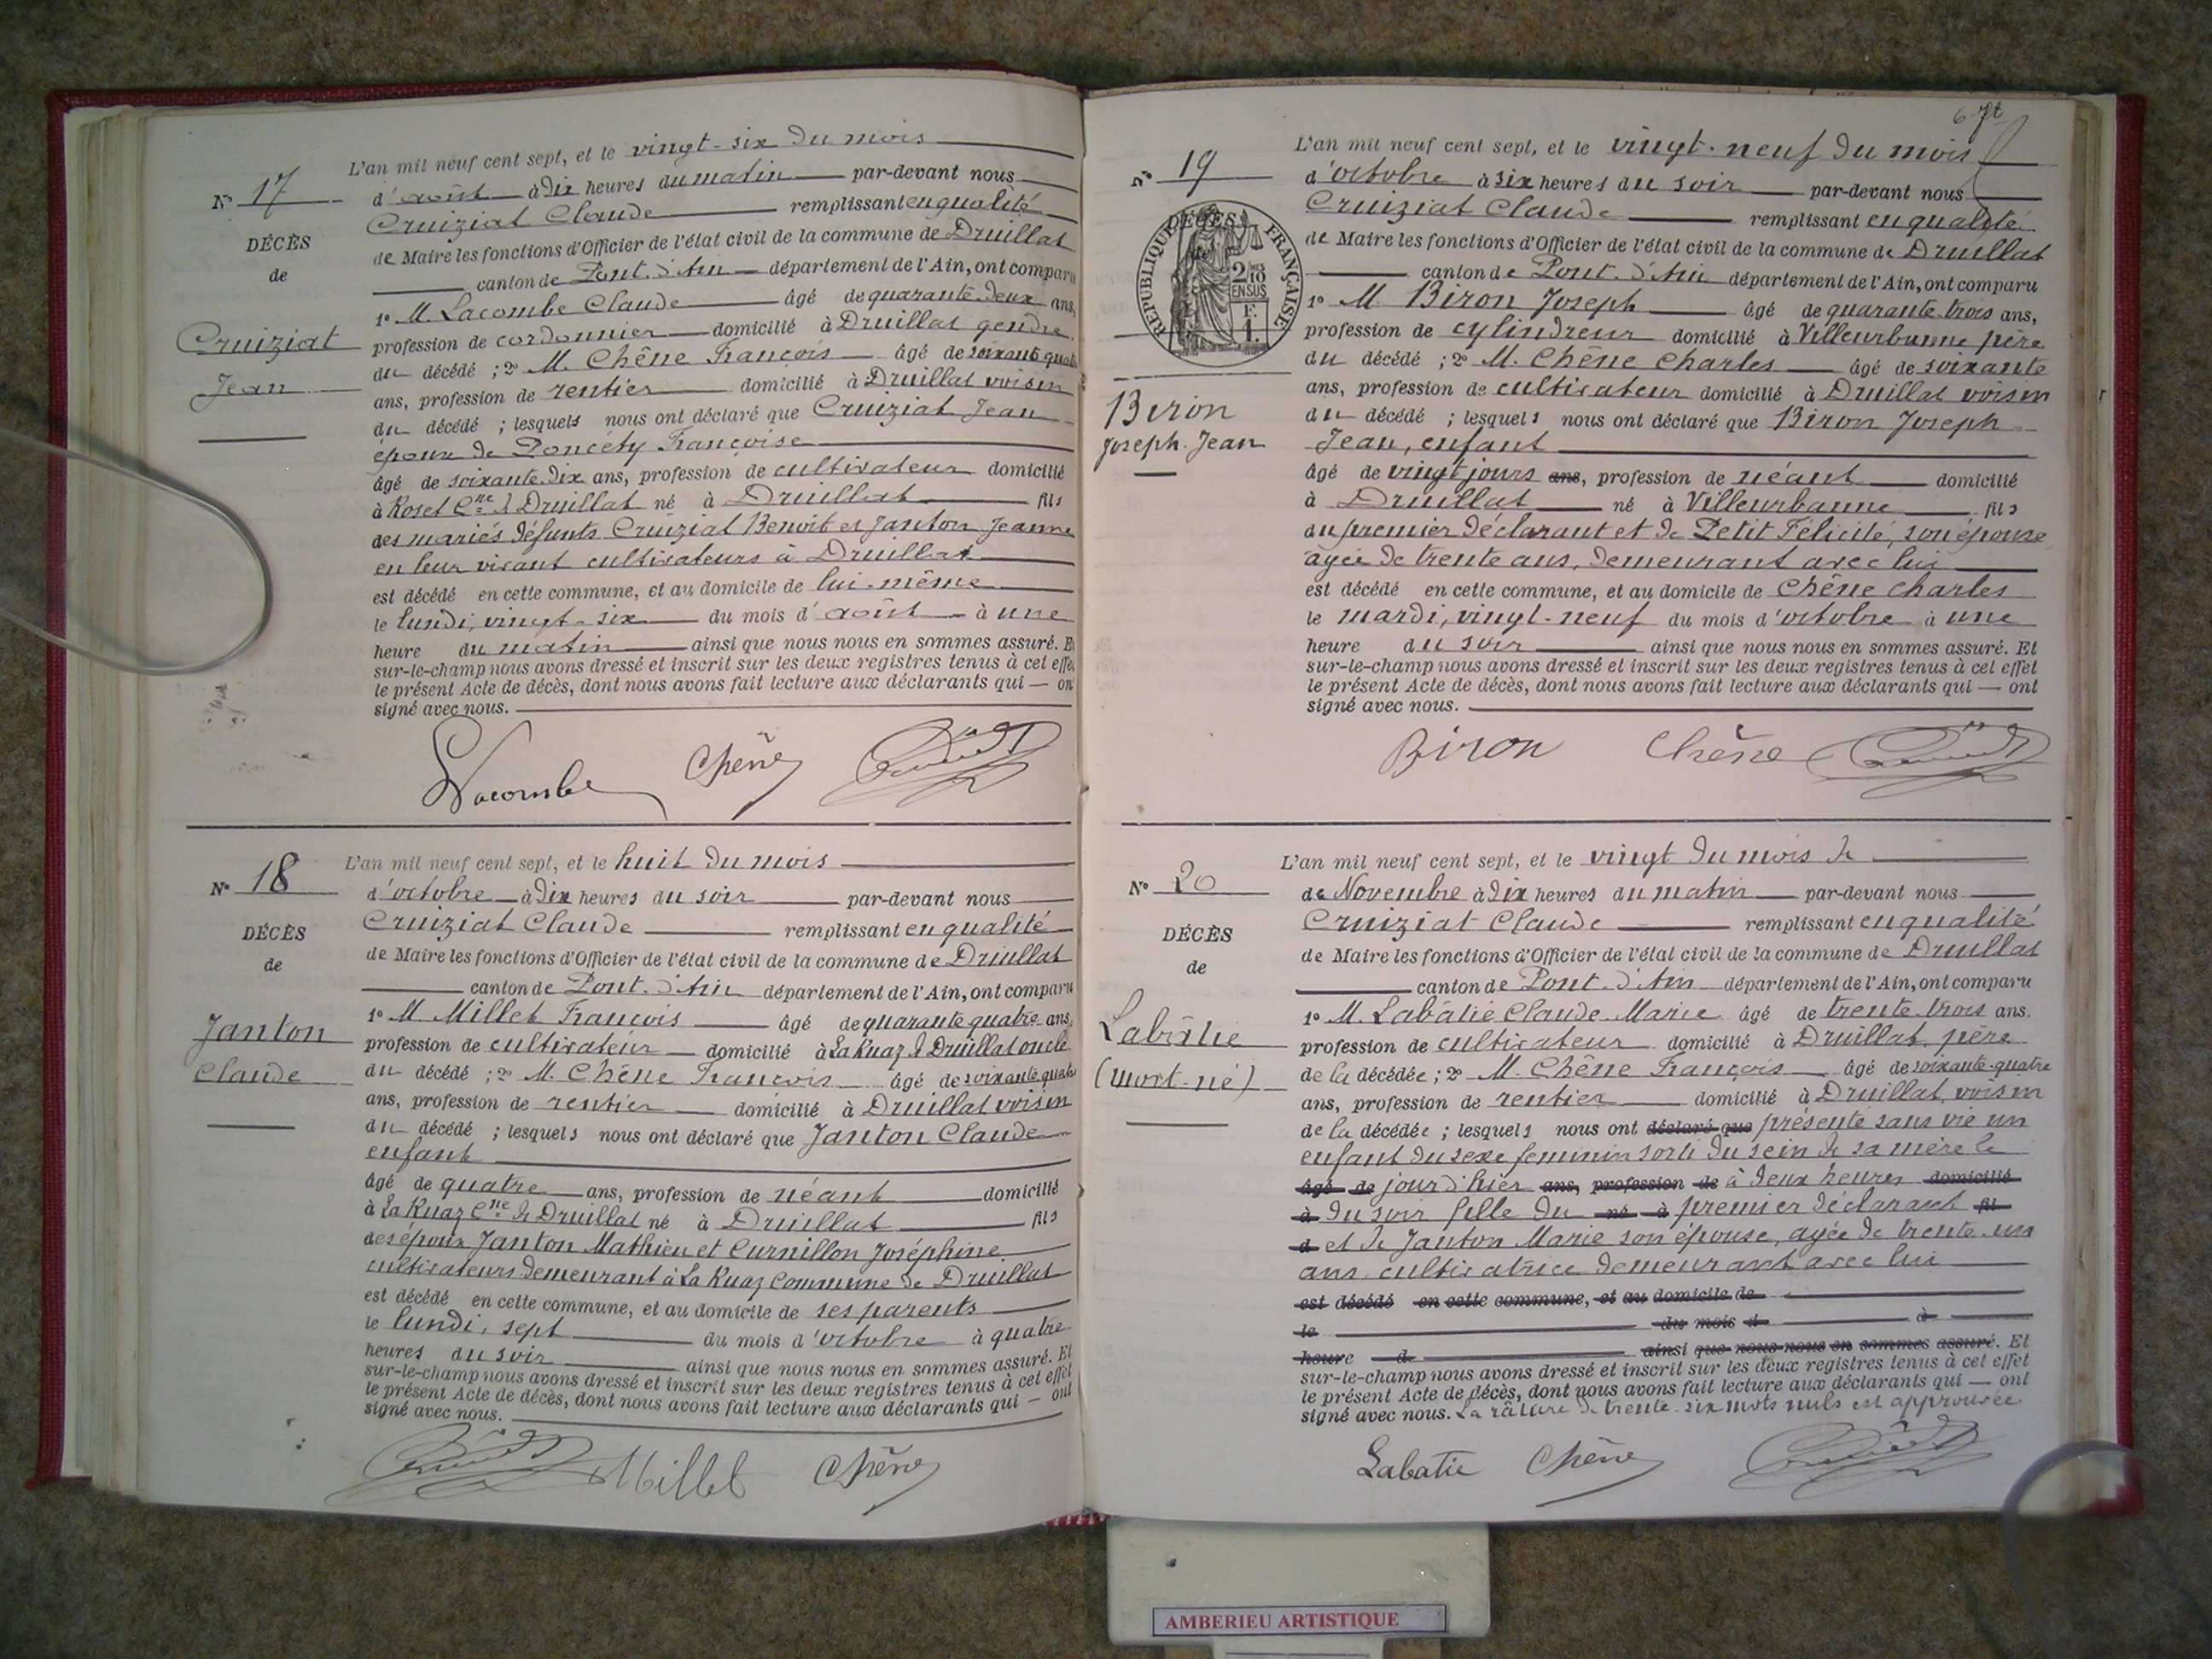 L'an mil neuf cent sept, et le vingt-six du mois
N° 17
d'août à dix heures du matin par-devant nous
Cruiziat Claude remplissant en qualité
DÉCÈS
de Maire les fonctions d'Officier de l'état civil de la commune de Druillat
de
canton de Pont-d'Ain département de l'Ain, ont comparu
1° M. Lacombe Claude âgé de quarante-deux ans,
Cruiziat
profession de cordonnier domicilié à Druillat gendre
du décédé ; 2° M. Chêne François âgé de soixante quatre
Jean
ans, profession de rentier domicilié à Druillat voisin
du décédé ; lesquels nous ont déclaré que Cruiziat Jean
époux de Poncéty Françoise
âgé de soixante-dix ans, profession de cultivateur domicilié
à Roset Cne de Druillat né à Druillat fils
des mariés défunts Cruiziat Benoit et Janton Jeanne
en leur vivant cultivateurs à Druillat
est décédé en cette commune, et au domicile de lui-même
le lundi, vingt-six du mois d'août à une
heure du matin ainsi que nous nous en sommes assuré. Et
sur-le-champ nous avons dressé et inscrit sur les deux registres tenus à cet effet
le présent Acte de décès, dont nous avons fait lecture aux déclarants qui — ont
signé avec nous.
Lacombe Chêne
L'an mil neuf cent sept, et le huit du mois
N° 18
d'octobre à dix heures du soir par-devant nous
Cruiziat Claude remplissant en qualité
DÉCÈS
de Maire les fonctions d'Officier de l'état civil de la commune de Druillat
de
canton de Pont-d'Ain département de l'Ain, ont comparu
1° M Millet François âgé de quarante quatre ans,
Janton
profession de cultivateur domicilié à La Ruaz de Druillat oncle
du décédé ; 2° M. Chêne François âgé de soixante quatre
Claude
ans, profession de rentier domicilié à Druillat voisin
du décédé ; lesquels nous ont déclaré que Janton Claude
enfant
âgé de quatre ans, profession de néant domicilié
à La Ruaz Cne de Druillat né à Druillat fils
des époux Janton Mathieu et Curnillon Joséphine
cultivateurs demeurant à La Ruaz commune de Druillat
est décédé en cette commune, et au domicile de ses parents
le lundi, sept du mois d'octobre à quatre
heures du soir ainsi que nous nous en sommes assuré. Et
sur-le-champ nous avons dressé et inscrit sur les deux registres tenus à cet effet
le présent Acte de décès, dont nous avons fait lecture aux déclarants qui — ont
signé avec nous.
Millet Chêne
L'an mil neuf cent sept, et le vingt-neuf du mois
N° 19
d'octobre à six heures du soir par-devant nous
Cruiziat Claude remplissant en qualité
DÉCÈS
RÉPUBLIQUE FRANÇAISE
2/10 EN SUS
F. 1.
de Maire les fonctions d'Officier de l'état civil de la commune de Druillat
canton de Pont-d'Ain département de l'Ain, ont comparu
1° M. Biron Joseph âgé de quarante-trois ans,
profession de cylindreur domicilié à Villeurbanne père
du décédé ; 2° M. Chêne Charles âgé de soixante
ans, profession de cultivateur domicilié à Druillat voisin
Biron
du décédé ; lesquels nous ont déclaré que Biron Joseph
Joseph-Jean
Jean, enfant
âgé de vingt jours ans, profession de néant domicilié
à Druillat né à Villeurbanne fils
du premier déclarant et de Petit Félicité, son épouse
agée de trente ans, demeurant avec lui
est décédé en cette commune, et au domicile de Chêne Charles
le mardi, vingt-neuf du mois d'octobre à une
heure du soir ainsi que nous nous en sommes assuré. Et
sur-le-champ nous avons dressé et inscrit sur les deux registres tenus à cet effet
le présent Acte de décès, dont nous avons fait lecture aux déclarants qui — ont
signé avec nous.
Biron Chêne
L'an mil neuf cent sept, et le vingt du mois de
N° 20
de Novembre à dix heures du matin par-devant nous
Cruiziat Claude remplissant en qualité
DÉCÈS
de Maire les fonctions d'Officier de l'état civil de la commune de Druillat
de
canton de Pont-d'Ain département de l'Ain, ont comparu
1° M. Labâtie Claude-Marie âgé de trente-trois ans.
Labâtie
profession de cultivateur domicilié à Druillat, père
(mort-né)
de la décédée ; 2° M. Chêne François âgé de soixante-quatre
ans, profession de rentier domicilié à Druillat, voisin
de la décédée ; lesquels nous ont déclaré que présenté sans vie un
enfant du sexe feminin sorti du sein de sa mère le
âgé de jour d'hier ans, profession de à deux heures domicilié
à du soir fille du né à premier déclarant fil
d et de Janton Marie son épouse, agée de trente-un
ans cultivatrice demeurant avec lui
est décédé en cette commune, et au domicile de
le du mois d à
heure d ainsi que nous nous en sommes assuré. Et
sur-le-champ nous avons dressé et inscrit sur les deux registres tenus à cet effet
le présent Acte de décès, dont nous avons fait lecture aux déclarants qui — ont
signé avec nous. La râture de trente-six mots nuls est approuvée
Labatie Chêne
AMBERIEU ARTISTIQUE